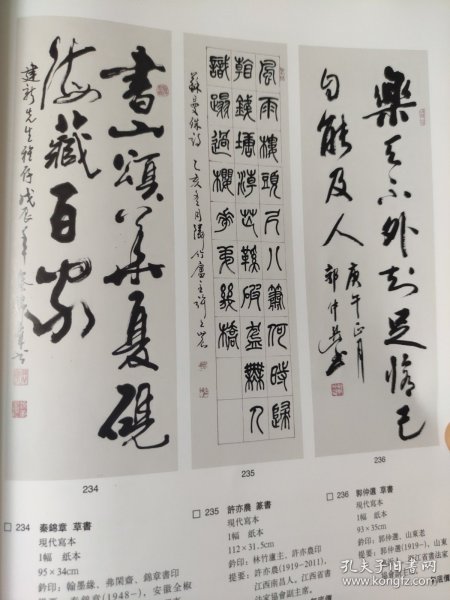 書山頌華夏硯
海藏百家
建新先生雅存 戊辰年 秦錦章書
風雨樓頭尺八簫何時歸
看錢塘潮芒鞋破盋無人
識蹋過櫻花第幾橋
蘇曼殊詩 乙亥冬月林竹廬主許亦農
樂天不外知足脩己
自能及人
庚午正月
郭仲選書
234
235
236
234 秦錦章 草書
現代寫本
1幅 紙本
95×34cm
鈐印:翰墨緣、弗閑齋、錦章書印
提要:秦錦章(1948-),安徽全椒
235 許亦農 篆書
現代寫本
1幅 紙本
112×31.5cm
鈐印:林竹廬主、許亦農印
提要:許亦農(1919-2011),
江西南昌人,江西省書
法家協會副主席。
236 郭仲選 草書
現代寫本
1幅 紙本
93×35cm
鈐印:郭仲選、山東老
提要:郭仲選(1919-),山東